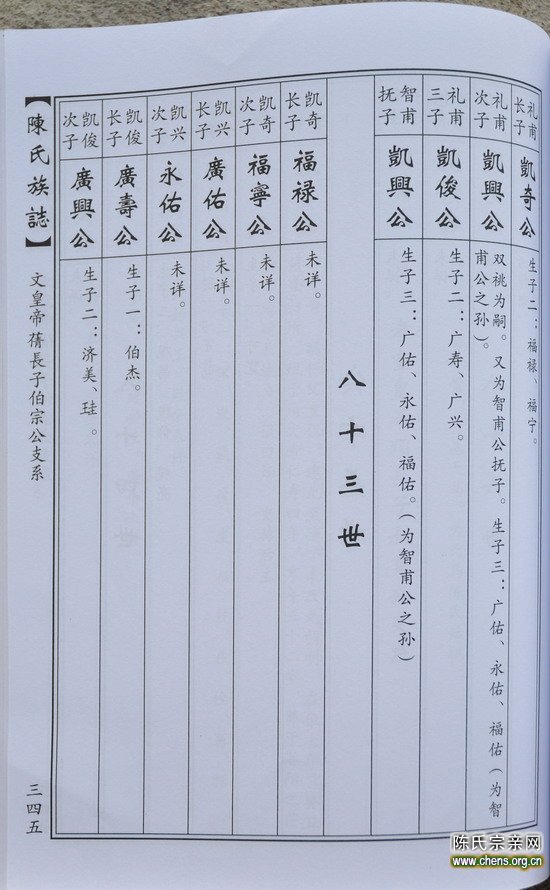 礼甫长子
凱奇公
生子二：福禄、福宁。
礼甫次子
凱興公
双祧为嗣。又为智甫公抚子。生子三：广佑、永佑、福佑（为智甫公之孙）。
礼甫三子
凱俊公
生子二：广寿、广兴。
智甫抚子
凱興公
生子三：广佑、永佑、福佑。（为智甫公之孙）
八十三世
凯奇长子
福禄公
未详。
凯奇次子
福寧公
未详。
凯兴长子
廣佑公
未详。
凯兴次子
永佑公
未详。
凯俊长子
廣壽公
生子一：伯杰。
凯俊次子
廣興公
生子二：济美、珪。
【陳氏族誌】
文皇帝蒨長子伯宗公支系
三四五
陈氏宗亲网
www.chens.org.cn